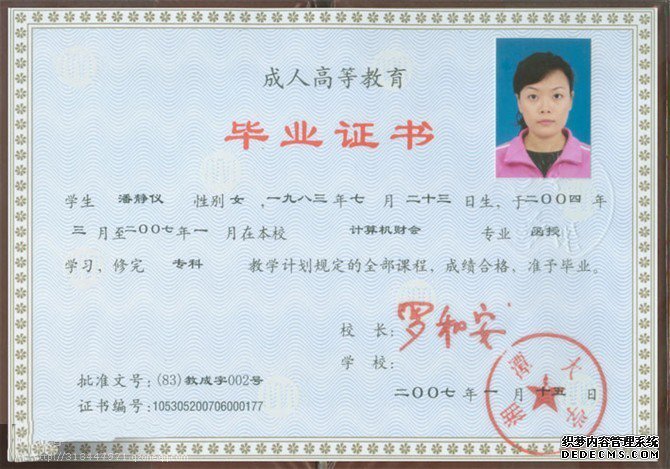 成人高等教育
毕业证书
学生 潘静仪 性别 女 ,一九八三 年 七 月 二十三 日生, 于 二〇〇四 年
三 月至 二〇〇七 年 一 月在本校 计算机财会 专业 函授
学习, 修完 专科 教学计划规定的全部课程, 成绩合格、准予毕业。
校 长: 罗和安
学 校:
湘潭大学
二〇〇七 年 一 月 十五 日
批准文号: (83) 教成字002号
证书编号: 105305200706000177
织梦内容管理系统
DEDECMS.COM